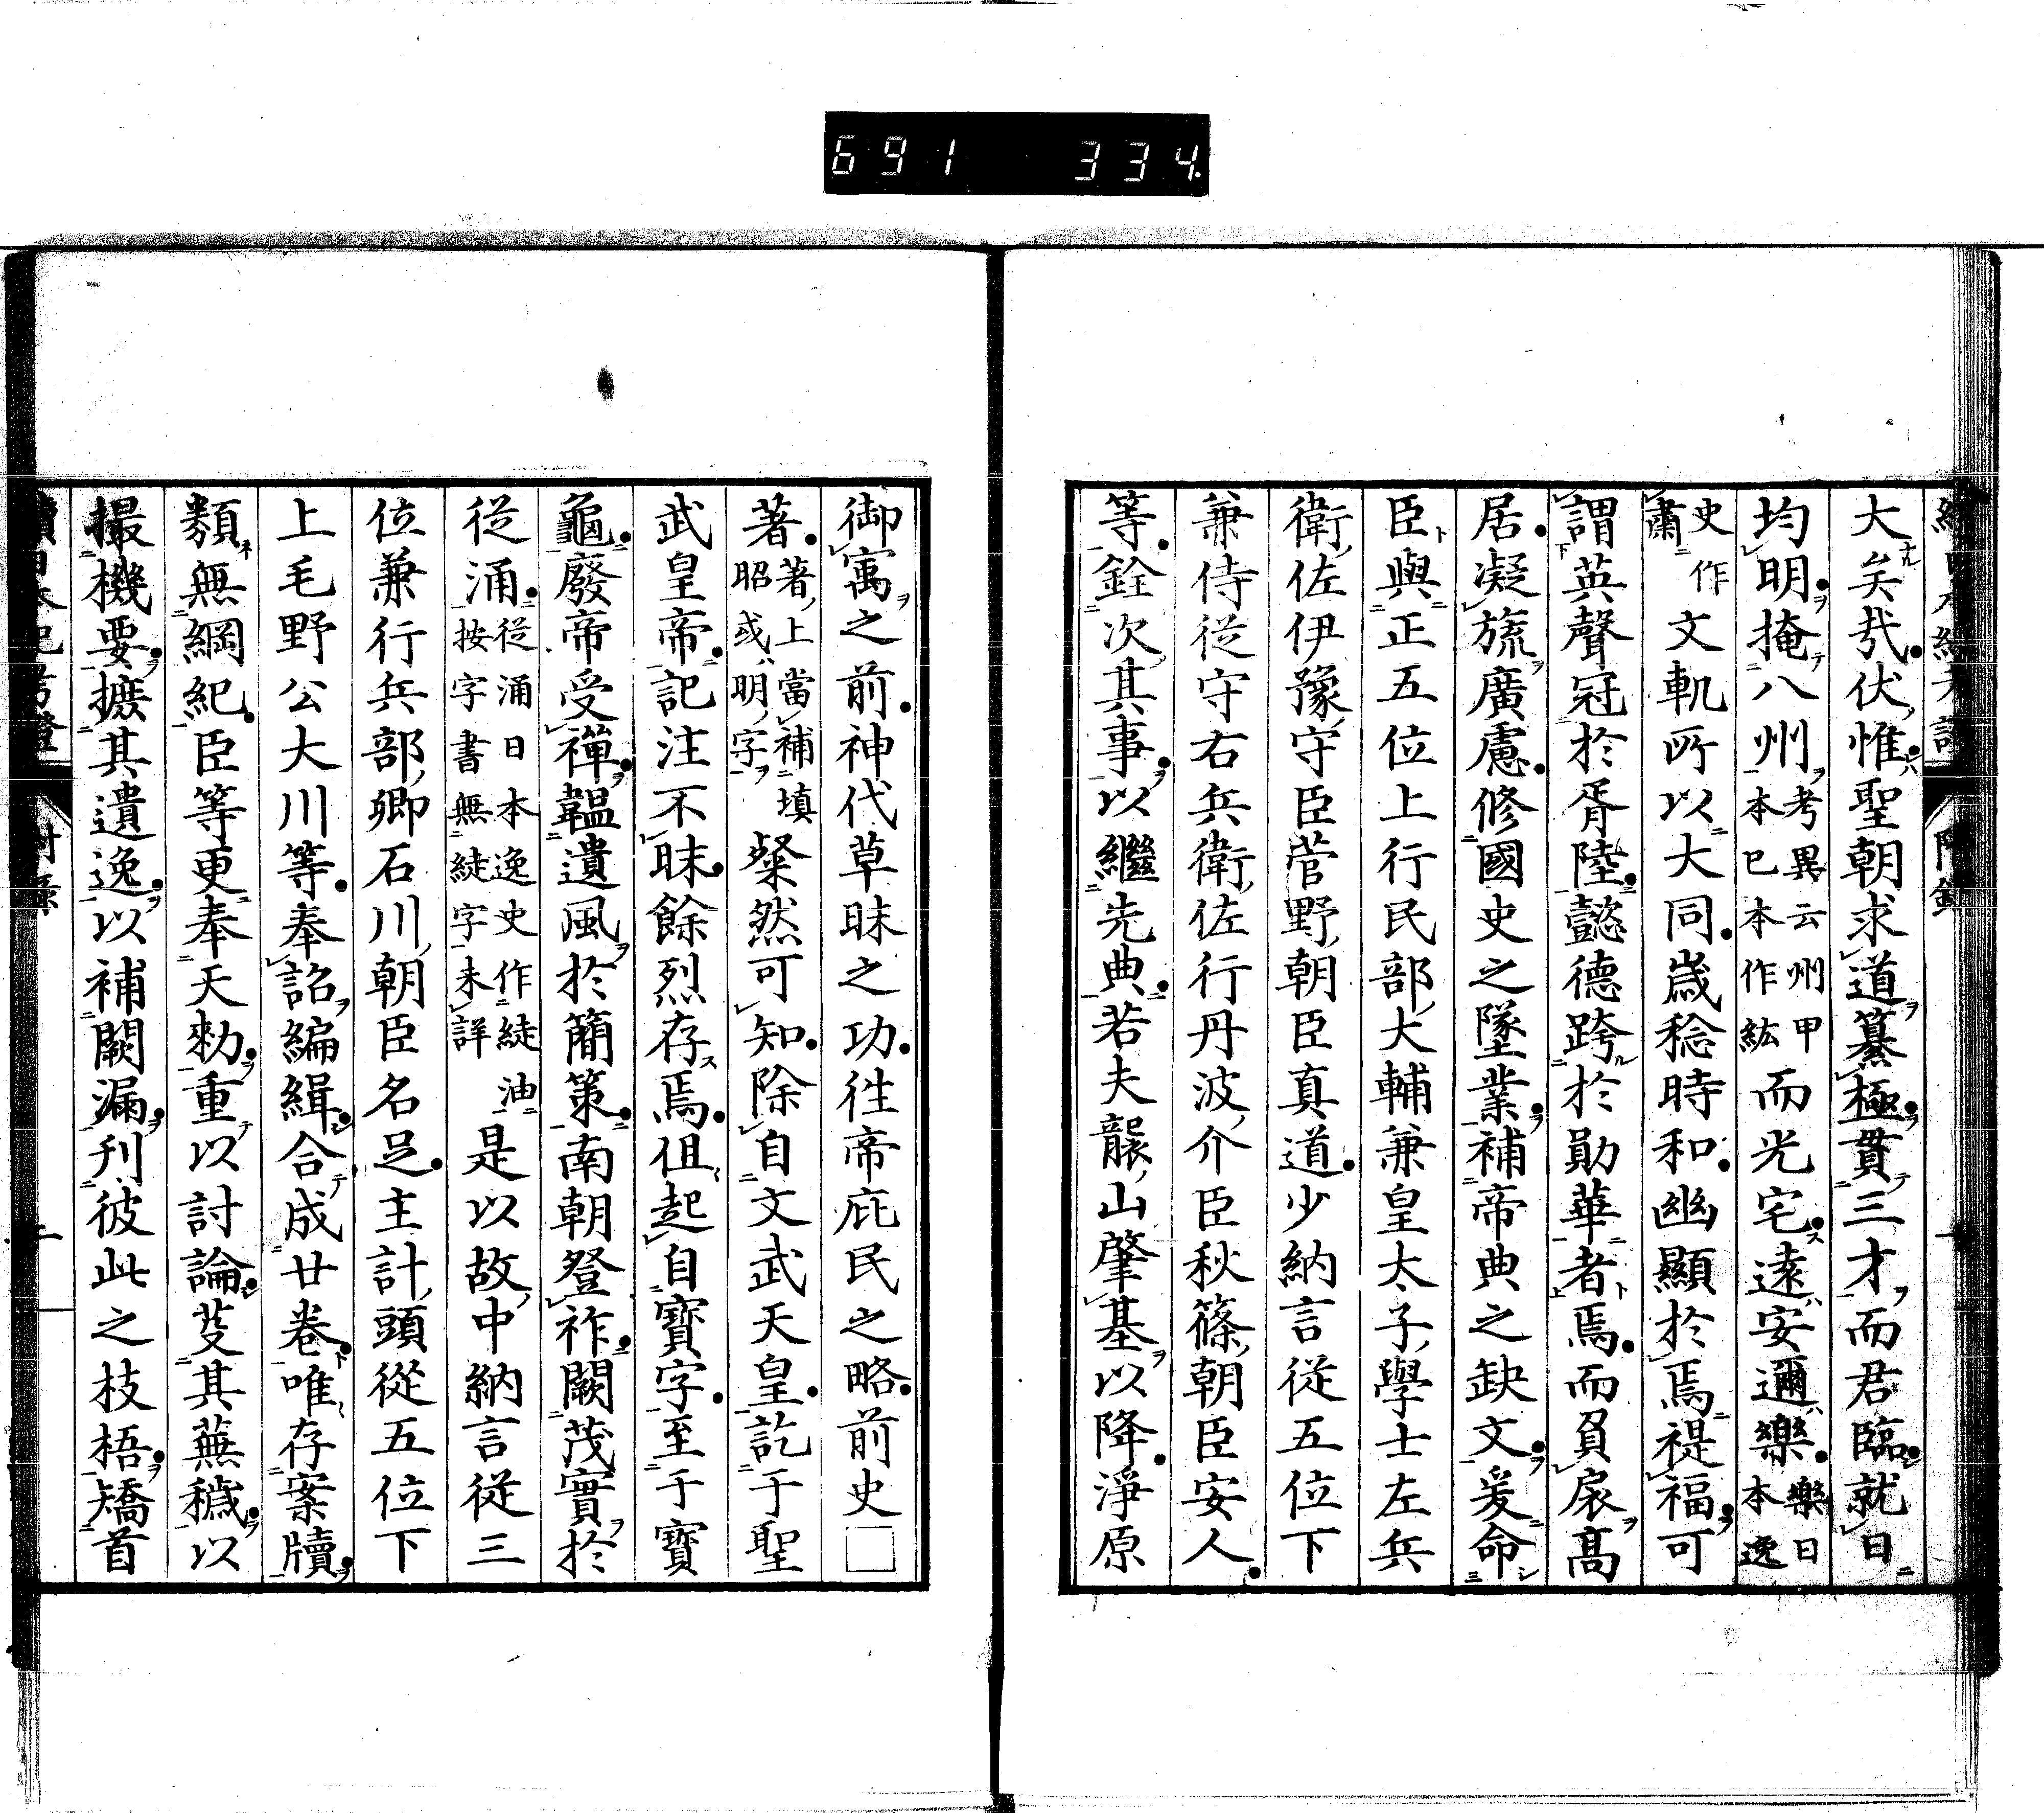 691 334.
大矣哉伏惟聖朝求道纂極貫三才而君臨就日
均明掩八州考異云州甲本巳本作紘而光宅遠安邇樂樂日本逸
史作肅文軌所以大同歲稔時和幽顯於焉禔福可
謂英聲冠於胥陸懿德跨於勛華者焉而負扆高
居凝旒廣慮修國史之墜業補帝典之缺文爰命
臣與正五位上行民部大輔兼皇太子學士左兵
衛佐伊豫守臣菅野朝臣真道少納言從五位下
兼侍從守右兵衛佐行丹波介臣秋篠朝臣安人
等銓次其事以繼先典若夫襲山肇基以降淨原
御寓之前神代草昧之功往帝庇民之略前史□
著著上當補填昭或明字粲然可知除自文武天皇訖于聖
武皇帝記注不昧餘烈存焉但起自寶字至于寶
龜廢帝受禪韞遺風於簡策南朝登祚闕茂實於
從涌從涌日本逸史作油按字書無字未詳是以故中納言從三
位兼行兵部卿石川朝臣名足主計頭從五位下
上毛野公大川等奉詔編緝合成廿卷唯存案牘
類無綱紀臣等更奉天勅重以討論芟其蕪穢以
撮機要摭其遺逸以補闕漏刊彼此之枝梧矯首